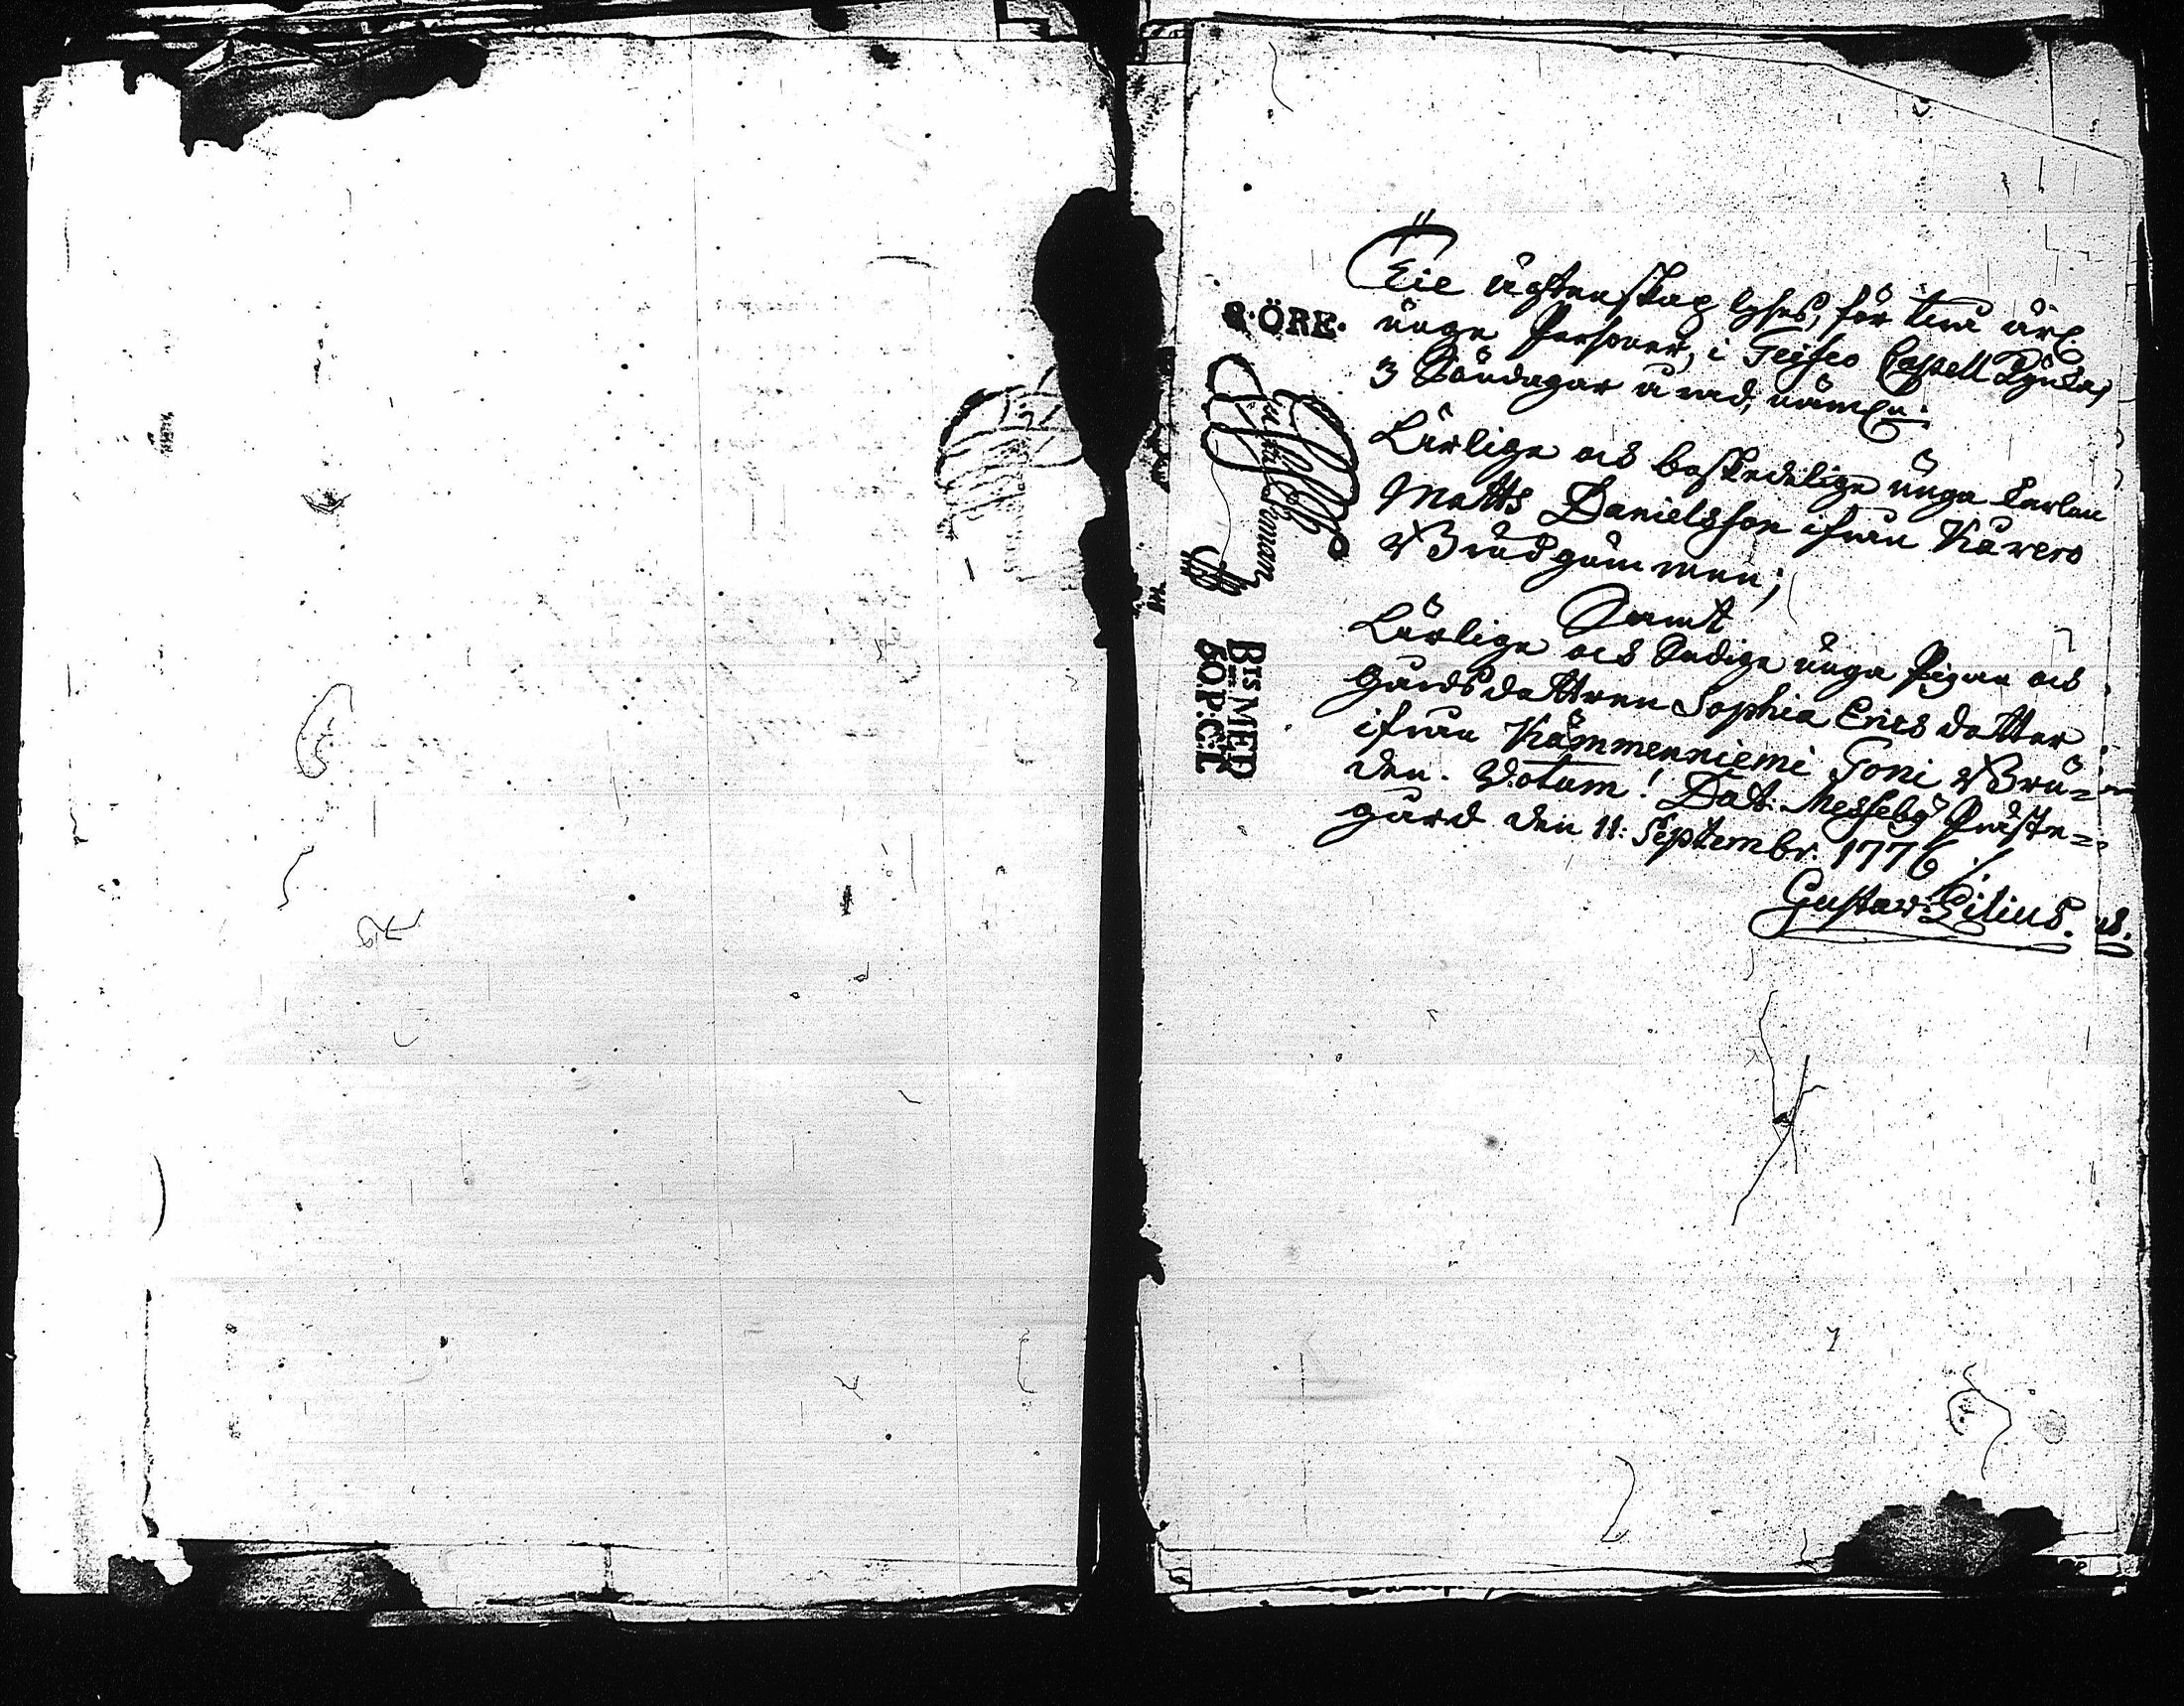 Til ägtenskap lyses, för twå ärl.
unga Personer, i Teisco Capell Kyrka,
3 Söndagar å rad, näml:n:
Ärlige och beskedelige unga Karlen
Matts Danielsson ifrån Kavero
Brudgummen;
Samt
Ärliga och Gudiga unga Pigan och
gårdsdottren Sophia Ericsdotter
ifrån Kämmenniemi Toni Bru=
den. Votum! Dat: Messeby Präste=
gård den 11: Septembr. 1776 ./.
Gustav Lilius.
8·ÖRE·
Bts MED
50 P:C:T